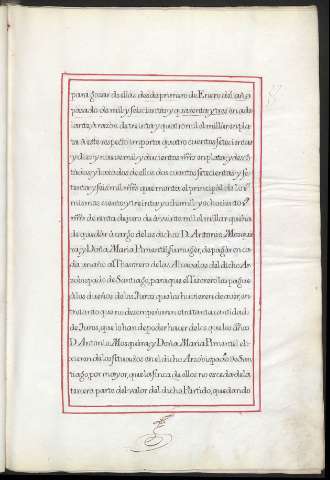 para gozar de ellos desde primero de Enero del año
pasado de mil y setecientos y quarenta y tres en ade
lante, à razon de treinta y quatro mil el millàr en pla
ta. A este respecto importa quatro cuentos setecientas
y diez y nueve mil y ducientos mrs en plata; y des
de ellos dos cuentos setecientas y se
tenta y seis mil mrs que monta el principàl de los
mismos cuento y treinta y ocho mil y ochocientos
mrs de renta de juro de à veinte mil el millàr que ha
de quedàr à cargo de los dichos D. Antonio Mosque
ra, y Doña Maria Pimentèl su muger, de pagàr en ca
da un año al Thesorero de las Alcavalas del dicho Ar
zobispado de Santiago, para que el Tesorero las pague
à los dueños de los Juros que los huvieren de avèr, en
tretanto que no desempeñaren otra tanta cantidad
de Juros, que lo han de podèr hacer de los que los dhos
D. Antonio Mosquera, y Doña Maria Pimentèl eli
gieren de los situados en el dicho Arzobispado de San
tiago, por mayor, que la finca de ellos no exceda de la
tercera parte del valor del dicho Partido, quedando